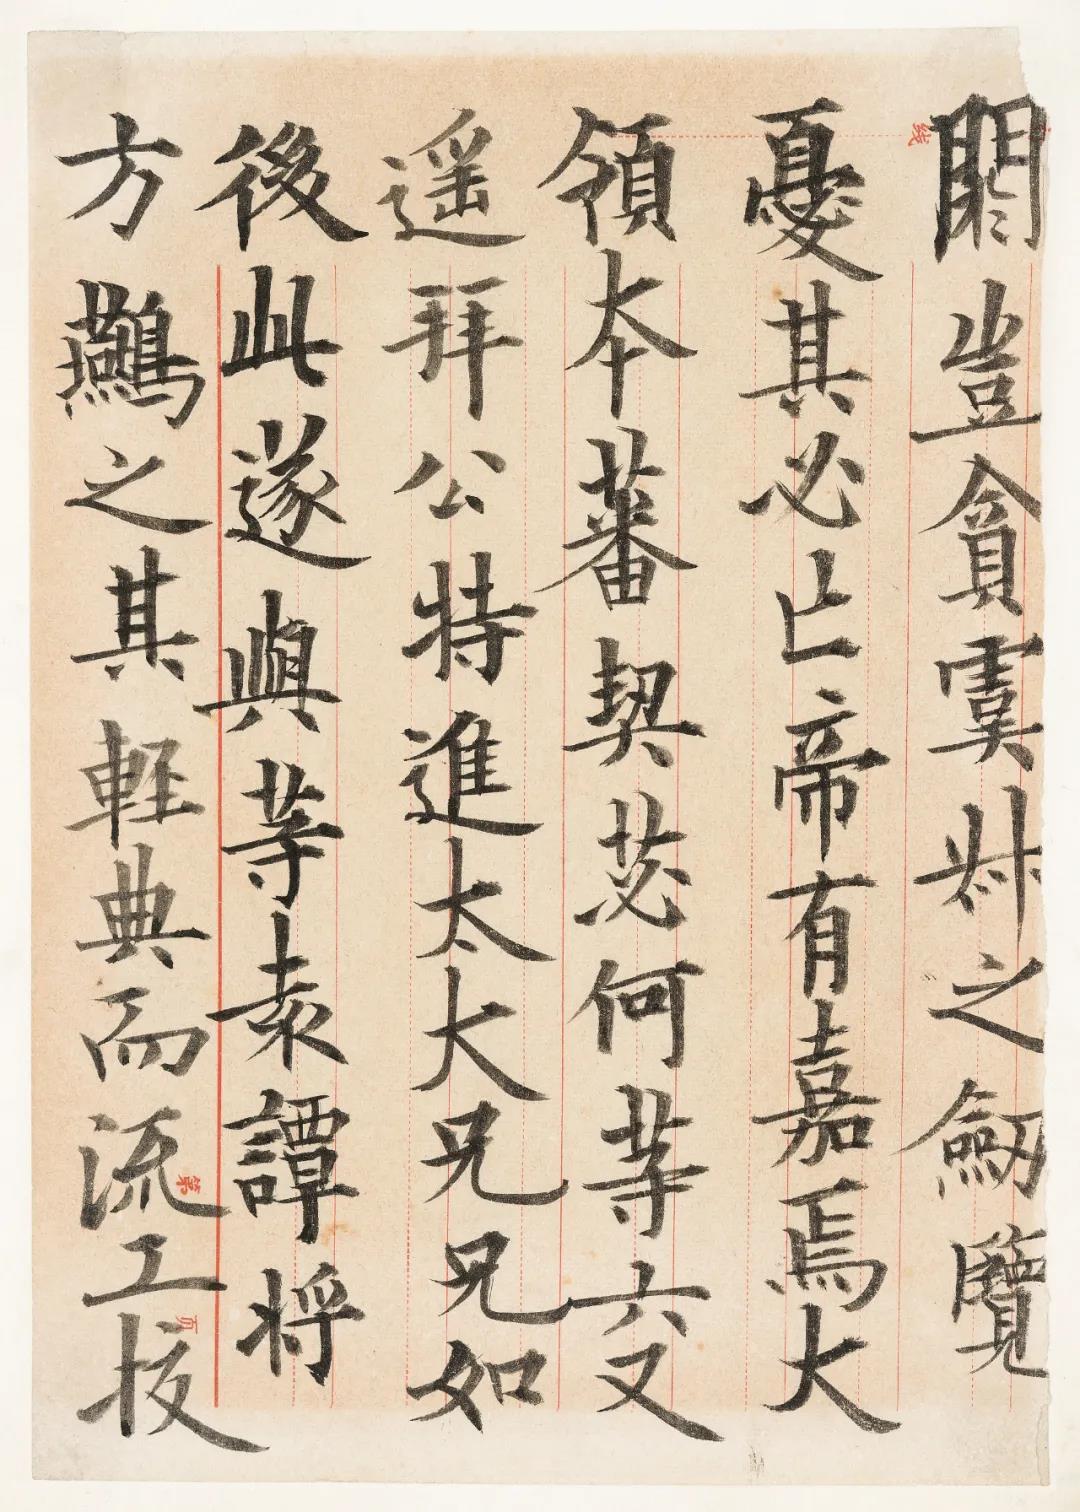 豈貪虞叔之劒覽
憂其必亡帝有嘉焉大
領本蕃契苾何等六又
遥拜公特進太大兄兄如
後此遂與等袁譚將
方鷰之其輕典而流工拔
线
第
页